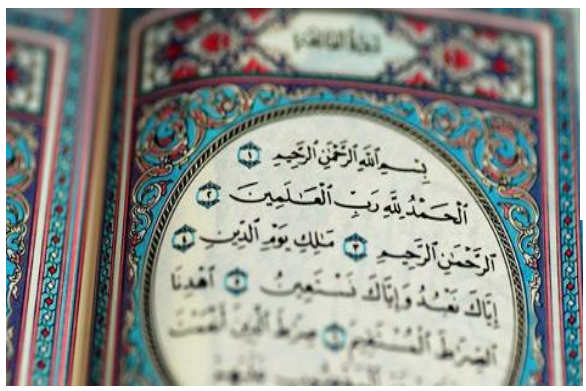 سورة الفاتحة
بِسْمِ ٱللَّهِ ٱلرَّحْمَٰنِ ٱلرَّحِيمِ ١
ٱلْحَمْدُ لِلَّهِ رَبِّ ٱلْعَٰلَمِينَ ٢
ٱلرَّحْمَٰنِ ٱلرَّحِيمِ ٣ مَٰلِكِ يَوْمِ ٱلدِّينِ ٤
إِيَّاكَ نَعْبُدُ وَإِيَّاكَ نَسْتَعِينُ ٥ ٱهْدِنَا
ٱلصِّرَٰطَ ٱلْمُسْتَقِيمَ ٦ صِرَٰطَ ٱلَّذِينَ أَنْعَمْتَ
عَلَيْهِمْ